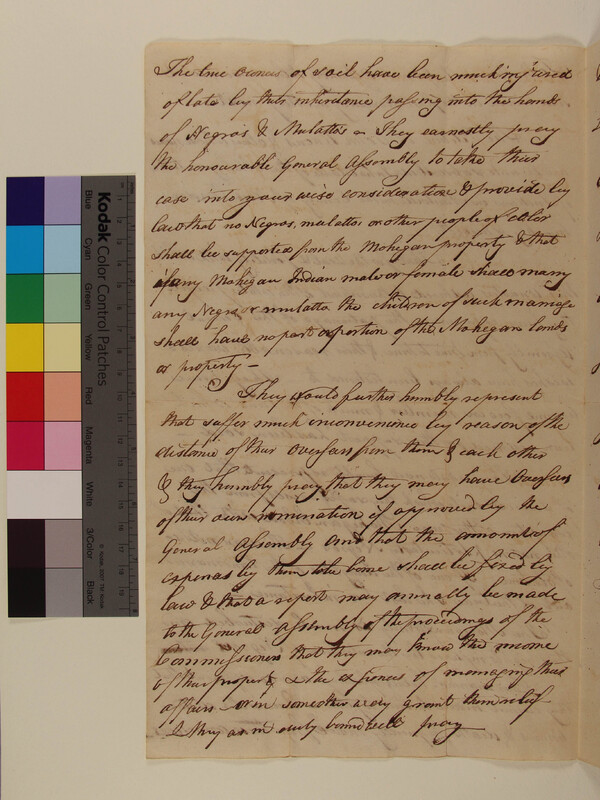 The true owners of soil have been much injured
of late by their inheritance passing into the hands
of Negros & Mulattos They earnestly pray
the honourable General Assembly to take their
case into your wise consideration & provide by
law that no Negros, mulattos or other people of color
shall be supported from the Mohegan property & that
if any Mohegan Indian male or female shall marry
any Negro or mulatto the children of such marriage
shall have no part or portion of the Mohegan lands
or property –
They would further humbly represent
that suffer much inconvenience by reason of the
distance of their overseers from them & each other
& they humbly pray that they may have Overseers
of their own nomination if approved by the
General Assembly and that the amount of
expenses by them to be borne shall be fixed by
law & that a report may annually be made
to the General Assembly of the proceedings of the
Commissioners that they may know the income
of their property & the expences of managing their
affairs or in some other way grant them relief
& they as in duty bound will pray
Kodak Color Control Patches
Blue
Cyan
Green
Yellow
Red
Magenta
White
3/Color
Black